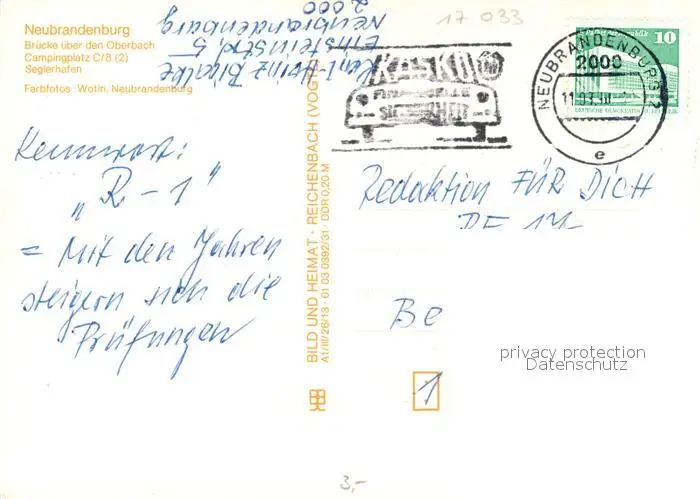 Neubrandenburg
Brücke über den Oberbach
Campingplatz C/8 (2)
Seglerhafen
Farbfotos: Wotin, Neubrandenburg
Karl-Heinz
Einsteinstr. 5
Neubrandenburg
2000
17 033
KASKO
FINANZIELLE
SICHERHEIT
NEUBRANDENBURG 2
2000
e
10
DEUTSCHE DEMOKRATISCHE REPUBLIK
Kennwort:
„R-1“
= Mit den Jahren
steigern sich die
Prüfungen
BILD UND HEIMAT · REICHENBACH (VOGTL
A1/III/26/13 · 01 03 0392/31 · DDR 0,20 M
Redaktion FÜR DICH
Be
1
privacy protection
Datenschutz
3,-